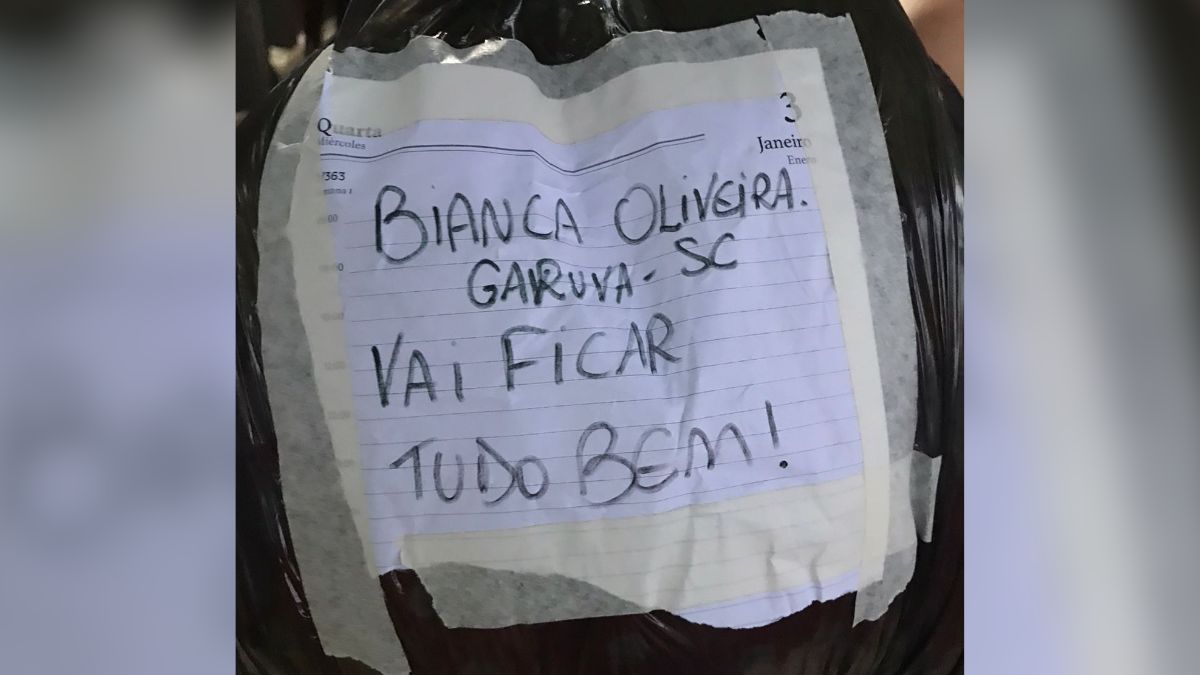 Quarta
Miércoles
3
Janeiro
Enero
/363
BIANCA OLIVEIRA.
GARUVA - SC
VAI FICAR
TUDO BEM!